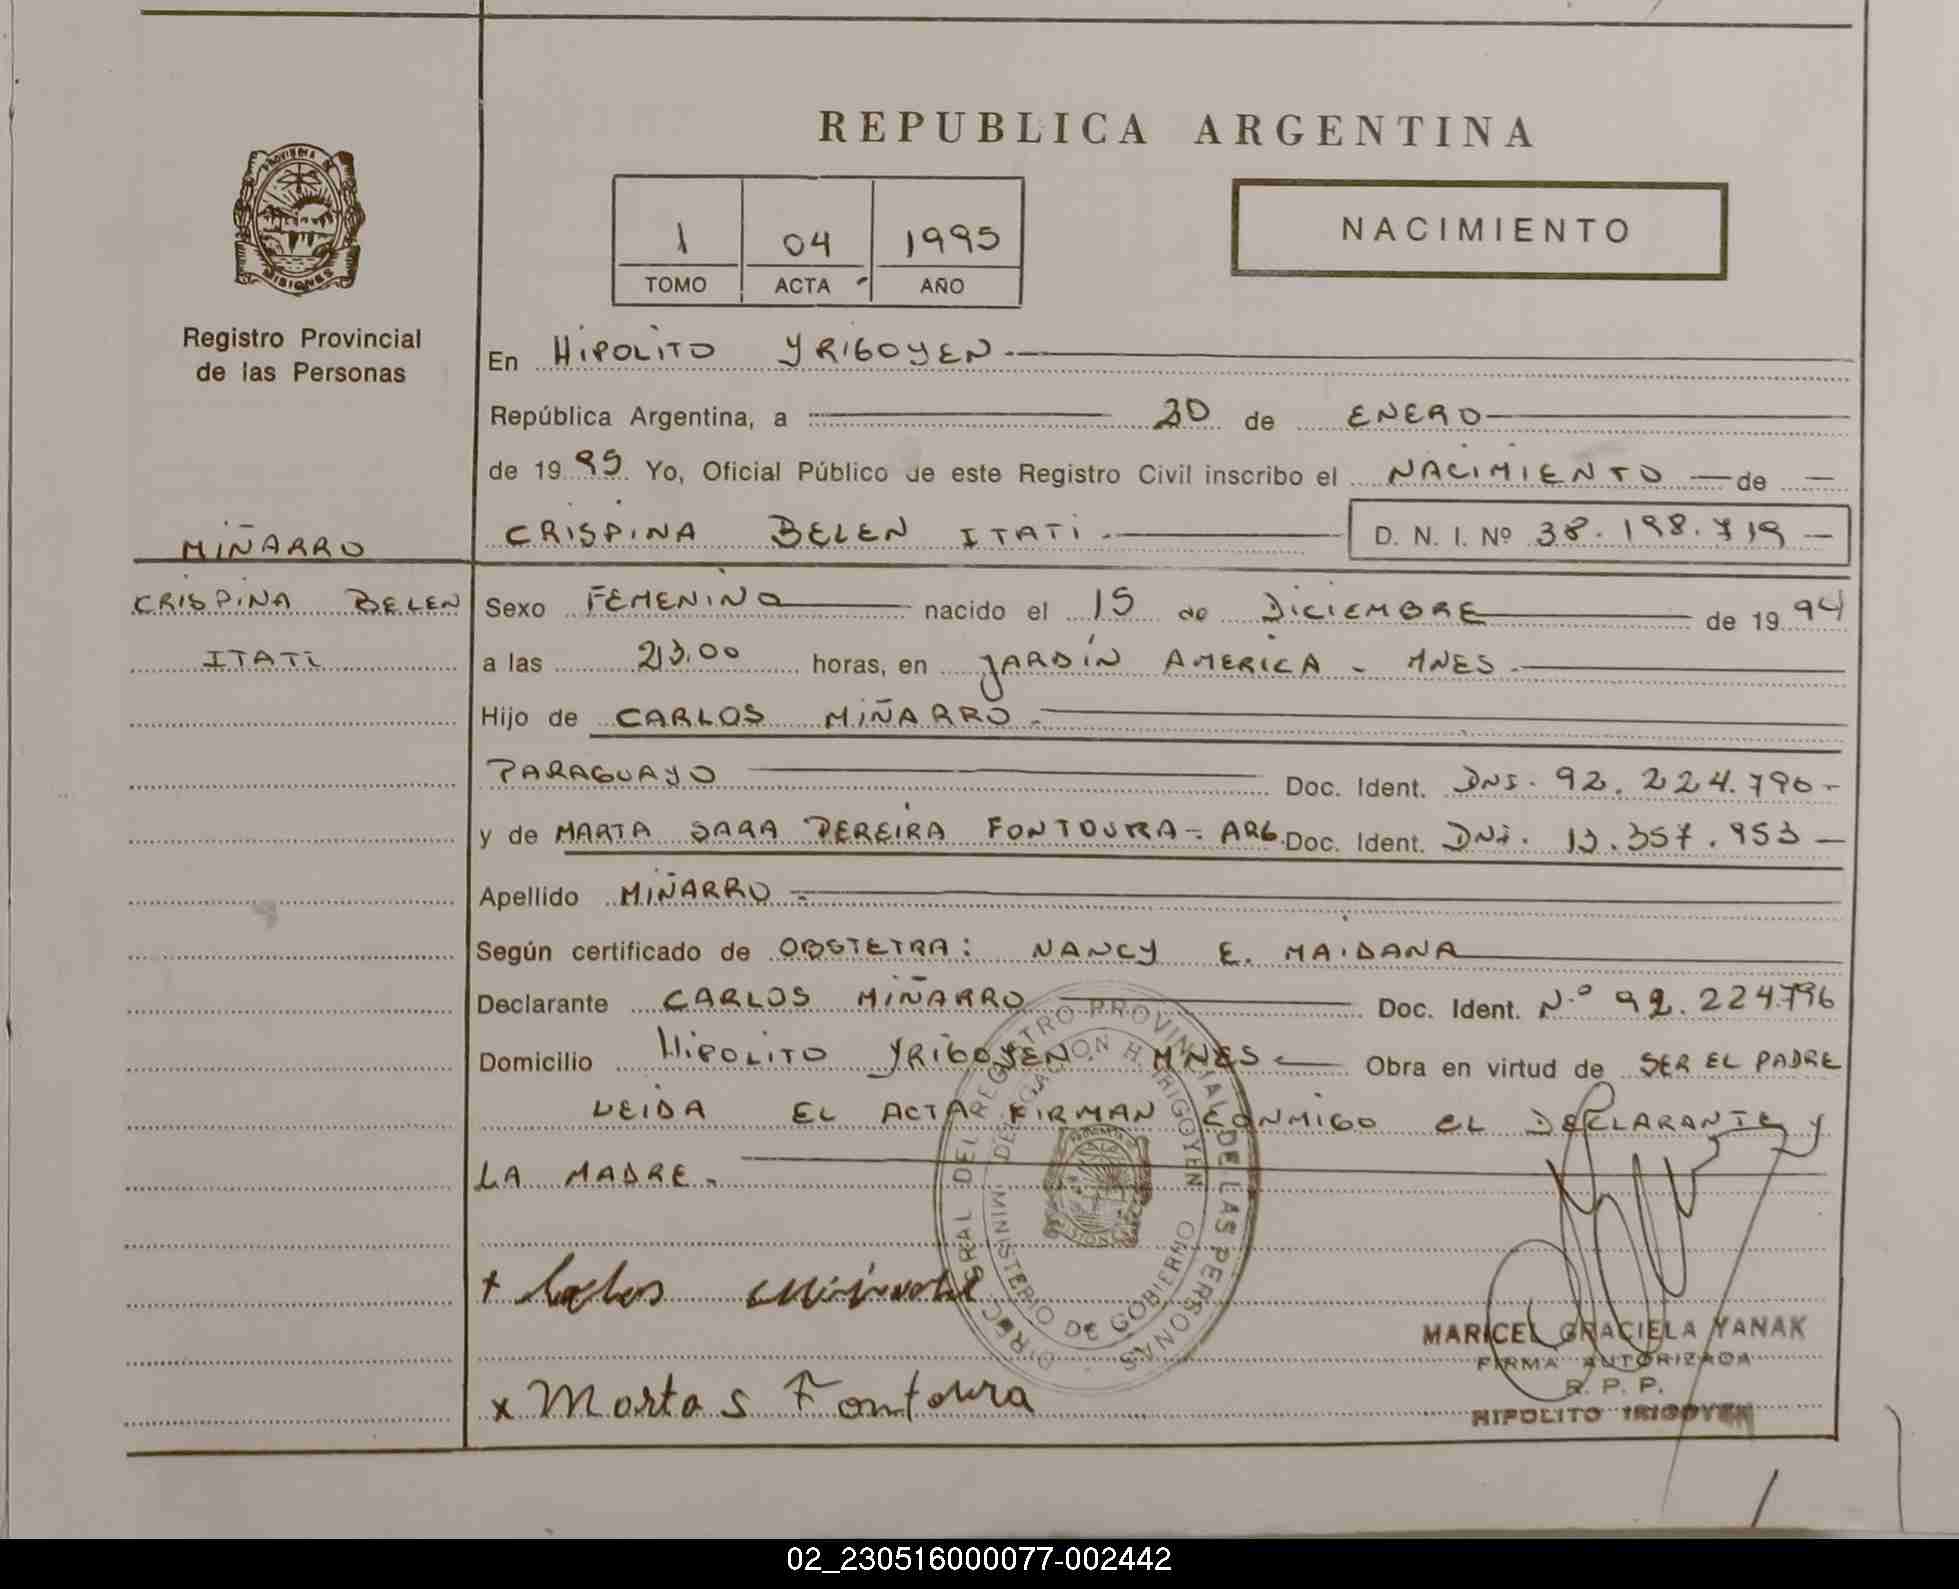 REPUBLICA ARGENTINA
PROVINCIA DE
MISIONES
NACIMIENTO
1 04 1995
TOMO ACTA AÑO
Registro Provincial
de las Personas
En HIPOLITO YRIGOYEN
República Argentina, a 20 de ENERO
de 1995 Yo, Oficial Público de este Registro Civil inscribo el NACIMIENTO — de —
MIÑARRO
CRISPINA BELEN ITATI
CRISPINA BELEN ITATI D. N. I. Nº 38.198.719 —
Sexo FEMENINO nacido el 15 de DICIEMBRE de 1994
a las 23.00 horas, en JARDIN AMERICA - MNES.
Hijo de CARLOS MIÑARRO.
PARAGUAYO Doc. Ident. DNI. 92.224.790-
y de MARTA SARA PEREIRA FONTOURA - ARG. Doc. Ident. DNI. 13.357.953 —
Apellido MIÑARRO
Según certificado de OBSTETRA: NANCY E. MAIDANA
Declarante CARLOS MIÑARRO Doc. Ident. N.º 92.224.796
Domicilio HIPOLITO YRIGOYEN. MNES Obra en virtud de SER EL PADRE
LEIDA EL ACTA FIRMAN CONMIGO EL DECLARANTE Y
LA MADRE.
DIREC. GRAL DEL REGISTRO PROVINCIAL DE LAS PERSONAS
DELEGACION H. IRIGOYEN
MINISTERIO DE GOBIERNO
+ Carlos Miñarro
x Marta S Fontoura
MARICEL GRACIELA YANAK
FIRMA AUTORIZADA
R. P. P.
HIPOLITO IRIGOYEN
02_230516000077-002442